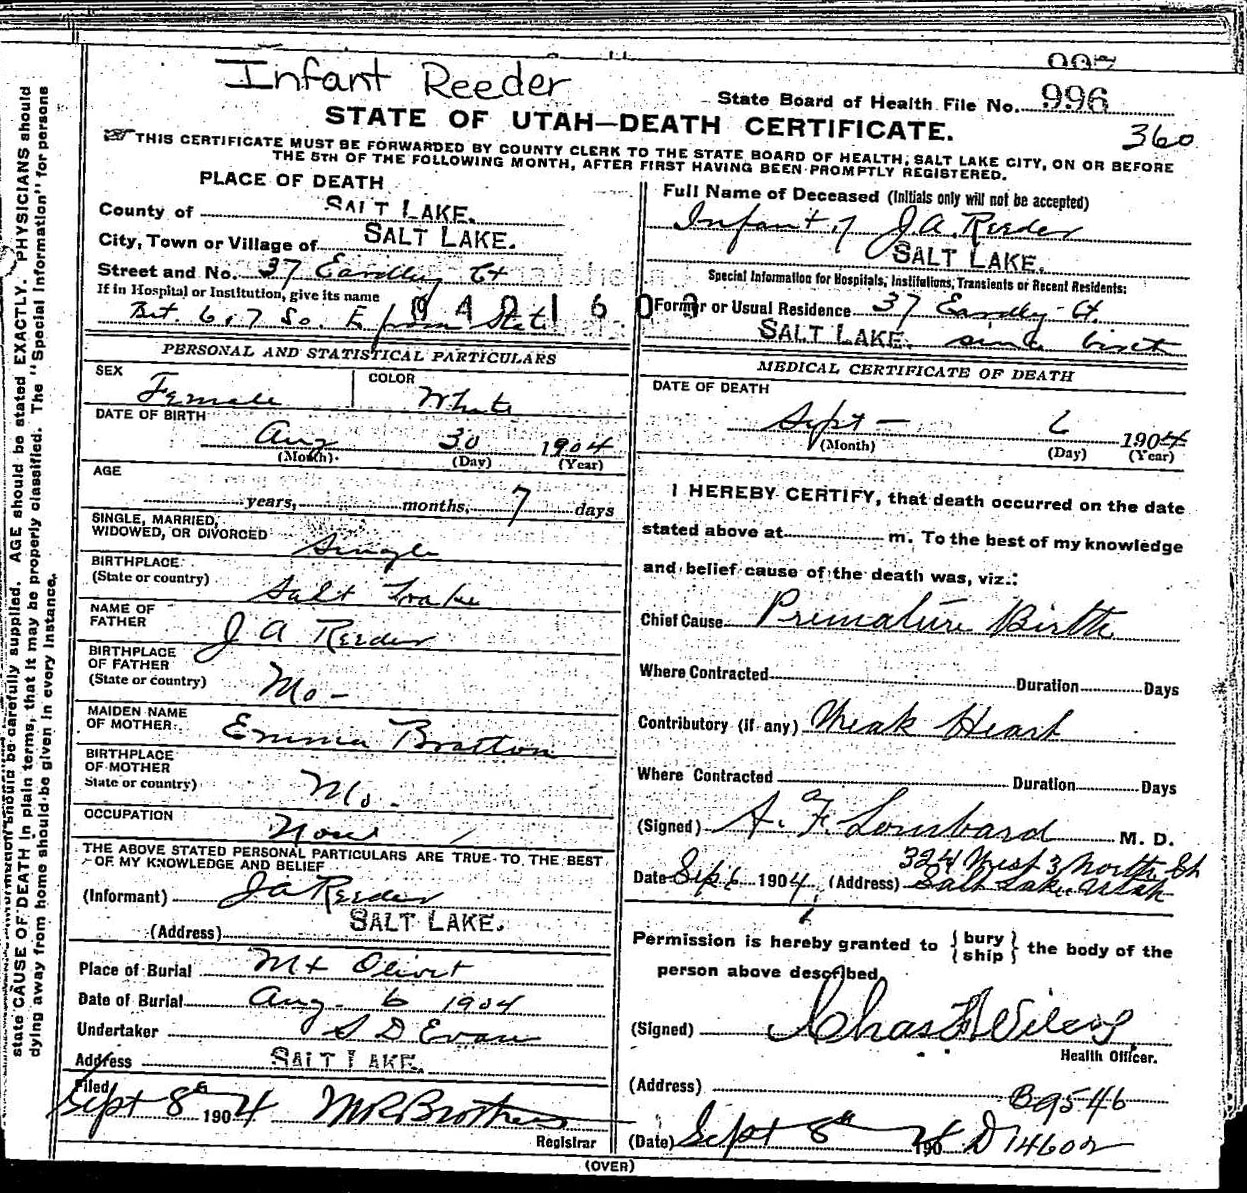 Infant Reeder
State Board of Health File No. 996
STATE OF UTAH—DEATH CERTIFICATE.
360
THIS CERTIFICATE MUST BE FORWARDED BY COUNTY CLERK TO THE STATE BOARD OF HEALTH, SALT LAKE CITY, ON OR BEFORE
THE 5TH OF THE FOLLOWING MONTH, AFTER FIRST HAVING BEEN PROMPTLY REGISTERED.
PLACE OF DEATH
County of SALT LAKE.
City, Town or Village of SALT LAKE.
Street and No. 37 Eardley Ct
If in Hospital or Institution, give its name
Bet. 6 & 7 So. E from State
0401603
PERSONAL AND STATISTICAL PARTICULARS
SEX Female COLOR White
DATE OF BIRTH
Aug 30 1904
(Month) (Day) (Year)
AGE
years, months, 7 days
SINGLE, MARRIED,
WIDOWED, OR DIVORCED Single
BIRTHPLACE
(State or country) Salt Lake
NAME OF
FATHER J A Reeder
BIRTHPLACE
OF FATHER
(State or country) Mo -
MAIDEN NAME
OF MOTHER Emma Bratton
BIRTHPLACE
OF MOTHER
State or country) Mo -
OCCUPATION None
THE ABOVE STATED PERSONAL PARTICULARS ARE TRUE TO THE BEST
OF MY KNOWLEDGE AND BELIEF
(Informant) J A Reeder
(Address) SALT LAKE.
Place of Burial Mt Olivet
Date of Burial Aug - 6 1904
Undertaker S D Evans
Address SALT LAKE.
Filed
Sept 8th 1904 M R Brothers
Registrar
Full Name of Deceased (Initials only will not be accepted)
Infant of J. A. Reeder
SALT LAKE.
Special Information for Hospitals, Institutions, Transients or Recent Residents:
Former or Usual Residence 37 Eardley Ct
SALT LAKE. since birth
MEDICAL CERTIFICATE OF DEATH
DATE OF DEATH
Sept - 6 1904
(Month) (Day) (Year)
I HEREBY CERTIFY, that death occurred on the date
stated above at m. To the best of my knowledge
and belief cause of the death was, viz.:
Chief Cause Premature Birth
Where Contracted Duration Days
Contributory (if any) Weak Heart
Where Contracted Duration Days
(Signed) A. F. Lombard M. D.
324 West 3 North St
Date Sep 6 1904, (Address) Salt Lake Utah
Permission is hereby granted to {bury
ship} the body of the
person above described.
(Signed) Chas F Wilcox
Health Officer.
(Address) B9546
(Date) Sept 8th 1904 D 14602
(OVER)
state CAUSE OF DEATH in plain terms, that it may be properly classified. The "Special Information" for persons
dying away from home should be given in every instance.
should be carefully supplied. AGE should be stated EXACTLY. PHYSICIANS should